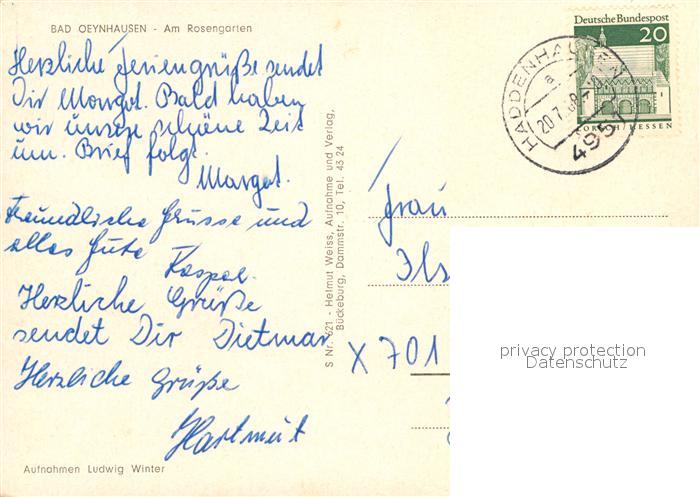 BAD OEYNHAUSEN - Am Rosengarten
Herzliche Feriengrüße sendet
Dir Margot. Bald haben
wir unsere schöne Zeit
um. Brief folgt.
Margot.
Freundliche Grüsse und
alles Gute
Herzliche Grüße
sendet Dir Dietmar
Herzliche Grüße
Hartmut
Aufnahmen Ludwig Winter
S Nr. 621 - Helmut Weiss, Aufnahme und Verlag,
Bückeburg, Dammstr. 10, Tel. 43 24
Deutsche Bundespost
20
LORSCH/HESSEN
HADDENHAUSEN
a
20.7.68
4951
Frau
Ils
X 701
privacy protection
Datenschutz